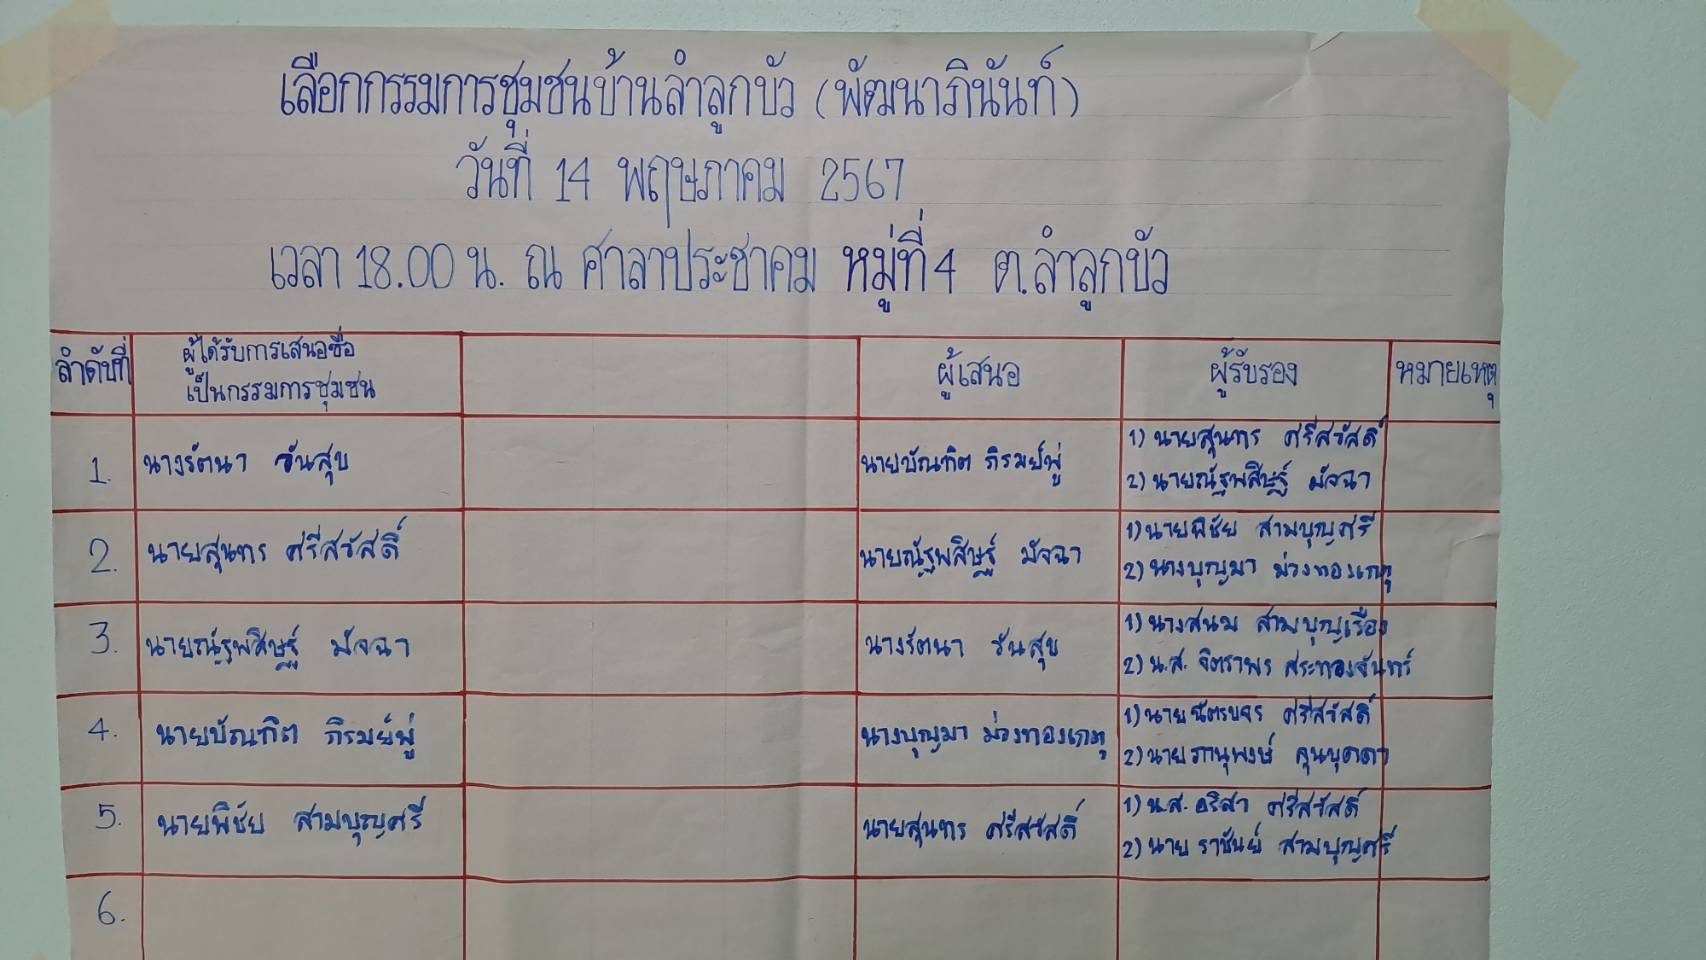 เลือกกรรมการชุมชนบ้านลำลูกบัว (พัฒนาภินันท์)
วันที่ 14 พฤษภาคม 2567
เวลา 18.00 น. ณ ศาลาประชาคม หมู่ที่ 4 ต.ลำลูกบัว
ลำดับที่ ผู้ได้รับการเสนอชื่อ ผู้เสนอ ผู้รับรอง หมายเหตุ
เป็นกรรมการชุมชน
1. นางรัตนา วันสุข นายบัณฑิต ภิรมย์พู่ 1) นายสุนทร ศรีสวัสดิ์
2) นายณัฐพสิษฐ์ มัจฉา
2. นายสุนทร ศรีสวัสดิ์ นายณัฐพสิษฐ์ มัจฉา 1) นายพิชัย สามบุญศรี
2) นางบุญมา ม่วงทองเกตุ
3. นายณัฐพสิษฐ์ มัจฉา นางรัตนา วันสุข 1) นางสนม สามบุญเรือง
2) น.ส. จิตราพร สระทองจันทร์
4. นายบัณฑิต ภิรมย์พู่ นางบุญมา ม่วงทองเกตุ 1) นายฉัตรขจร ศรีสวัสดิ์
2) นายภานุพงษ์ ลุนบุดดา
5. นายพิชัย สามบุญศรี นายสุนทร ศรีสวัสดิ์ 1) น.ส. อริสา ศรีสวัสดิ์
2) นาย ราชันย์ สามบุญศรี
6.